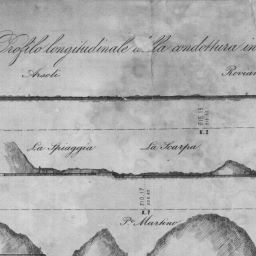 Profilo longitudinale della condottura in
Arsoli Rovian
N.2
La Spiaggia La Scarpa
N.2
P.e Martino